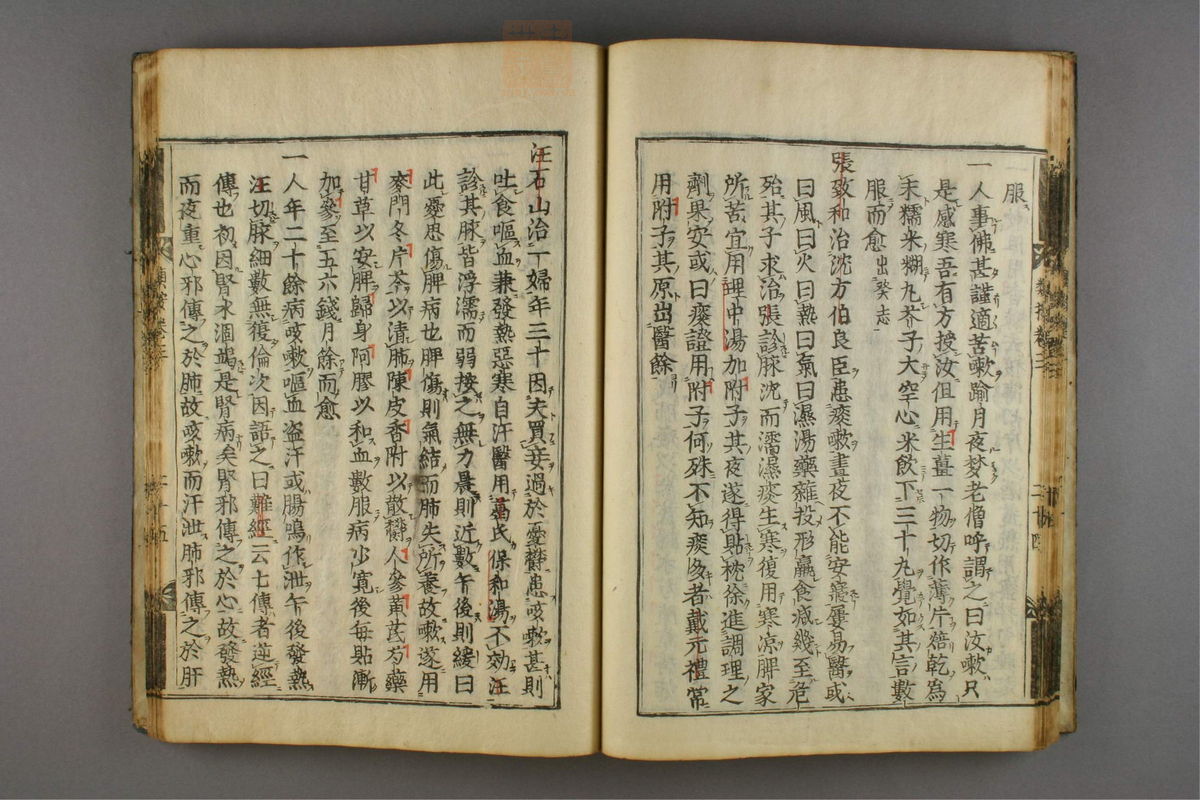 一服
一人事佛甚謹適苦嗽踰月夜梦老僧呼謂之曰汝嗽只
是感寒吾有方授汝但用生薑一物切作薄片焙乾為
末糯米糊丸芥子大空心米飲下三十丸覺如其言數
服而愈出癸志
張致和治沈方伯良臣患痰嗽晝夜不能安寢屢易醫或
曰風曰火曰熱曰氣曰濕湯藥雜投形羸食减幾至危
殆其子求治張診脉沈而濡濕痰生寒復用寒凉脾家
所苦宜用理中湯加附子其夜遂得貼枕徐進調理之
劑果安或曰痰證用附子何殊不知痰多者戴元禮常
用附子其原出醫餘
汪石山治一婦年三十因夫買妾過於憂欝患咳嗽甚則
吐食嘔血兼發熱惡寒自汗醫用葛氏保和湯不効汪
診其脉皆浮濡而弱按之無力晨則近數午後則緩曰
此憂思傷脾病也脾傷則氣結而肺失所養故嗽遂用
麥門冬片芩以清肺陳皮香附以散欝人參黄芪芍藥
甘草以安脾歸身阿膠以和血數服病少寛後每貼漸
加參至五六錢月餘而愈
一人年二十餘病咳嗽嘔血盗汗或腸鳴作泄午後發熱
汪切脉細數無復倫次因語之曰難經云七傳者逆經
傳也初因腎水涸竭是腎病矣腎邪傳之於心故發熱
而夜重心邪傳之於肺故咳嗽而汗泄肺邪傳之於肝